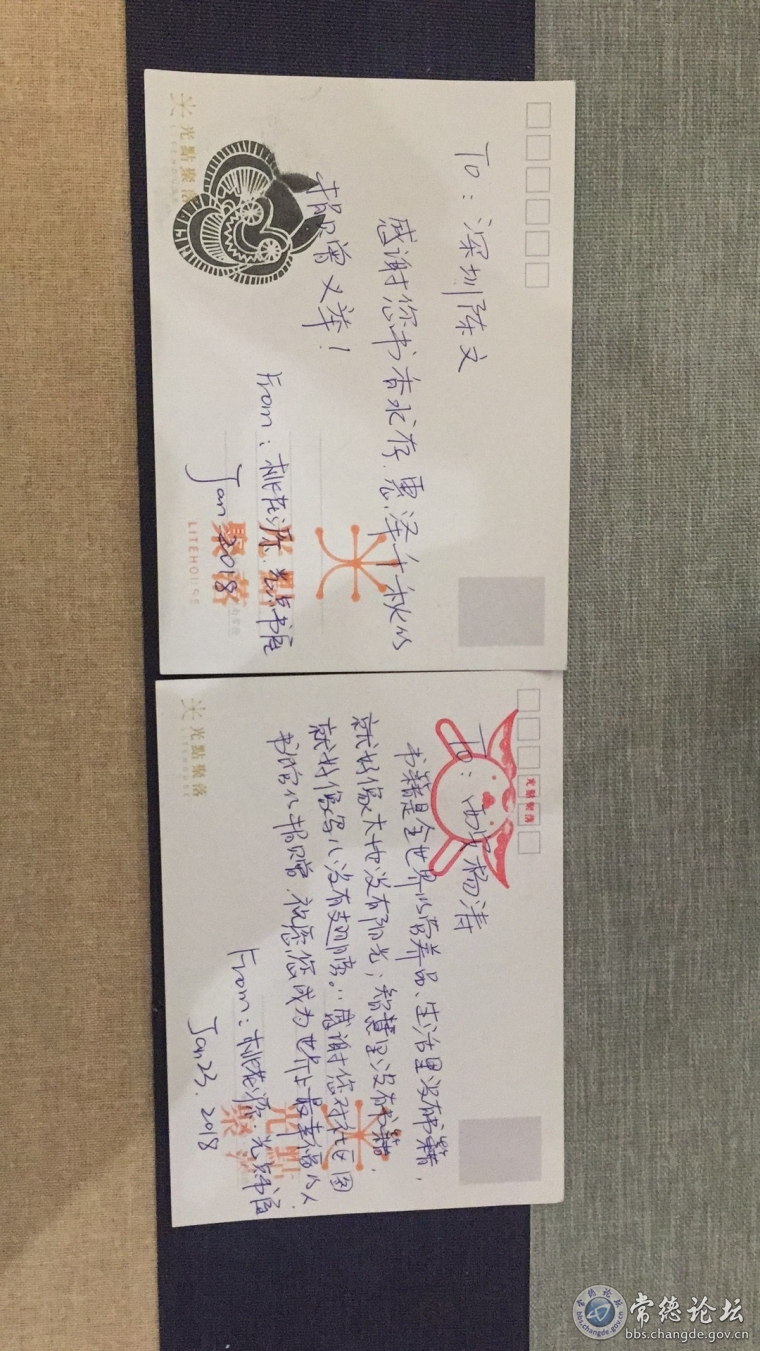 To：深圳陈文
感谢您书香永存、惠泽千秋的
捐赠义举！
From：桃花源·光点书店
Jan 2018
光點聚落
光點
聚落
LITEHOUSE
To：西安杨涛
书籍是全世界的营养品、生活里没有书籍，
就好像大地没有阳光；智慧里没有书籍，
就好像鸟儿没有翅膀。感谢您对社区图
书馆的捐赠，祝愿您成为世界上最幸福的人
From：桃花源·光点书店
Jan 23, 2018
光點聚落
光點聚落
光點
聚落
常德论坛
bbs.changde.gov.cn